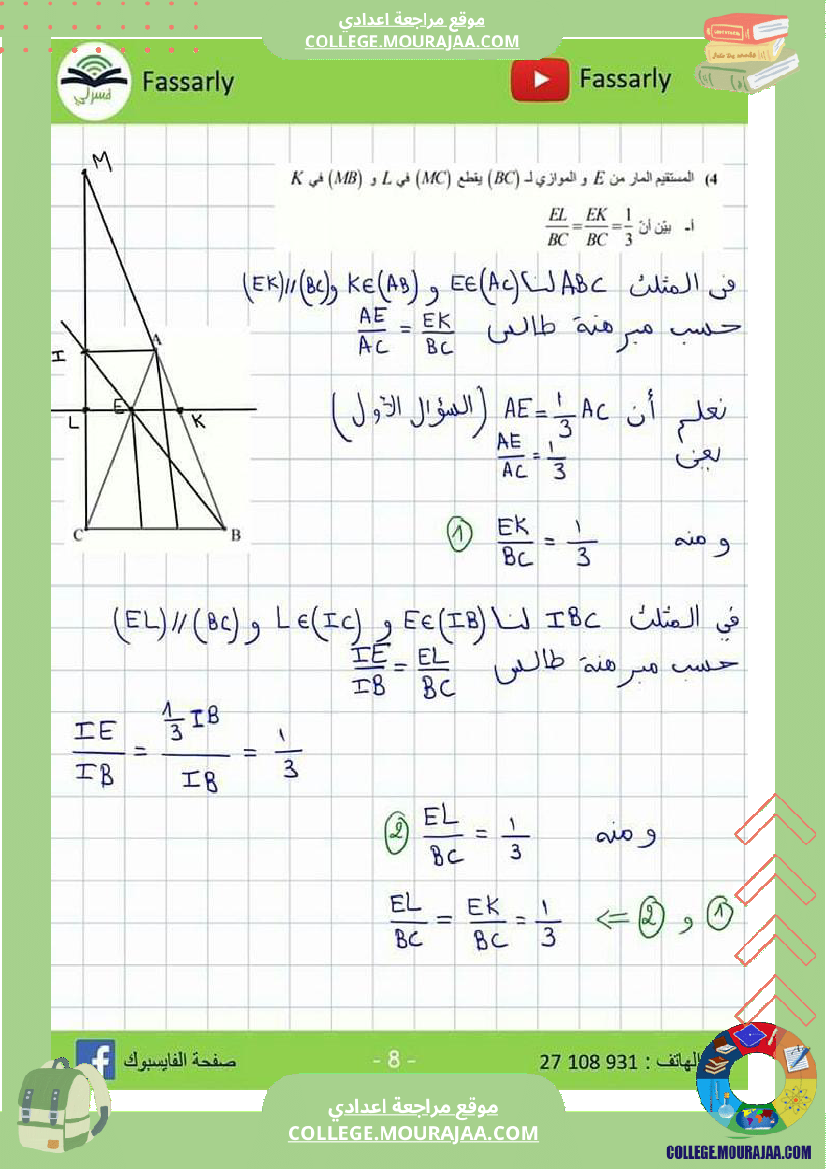 موقع مراجعة اعدادي
COLLEGE.MOURAJAA.COM
فسرلي
Fassarly
Fassarly
M
I
A
L
E
K
C
B
4) المستقيم المار من E و الموازي لـ (BC) يقطع (MC) في L و (MB) في K
أ- بيّن أنّ EL/BC = EK/BC = 1/3
في المثلث ABC لنا E∈(AC) و K∈(AB) و (EK)//(BC)
حسب مبرهنة طالس AE/AC = EK/BC
نعلم أن AE = 1/3 AC (السؤال الأول)
يعني AE/AC = 1/3
و منه EK/BC = 1/3 ①
في المثلث IBC لنا E∈(IB) و L∈(IC) و (EL)//(BC)
حسب مبرهنة طالس IE/IB = EL/BC
IE/IB = 1/3 IB / IB = 1/3
و منه EL/BC = 1/3 ②
① و ② => EL/BC = EK/BC = 1/3
صفحة الفايسبوك
- 8 -
الهاتف : 27 108 931
موقع مراجعة اعدادي
COLLEGE.MOURAJAA.COM
COLLEGE.MOURAJAA.COM